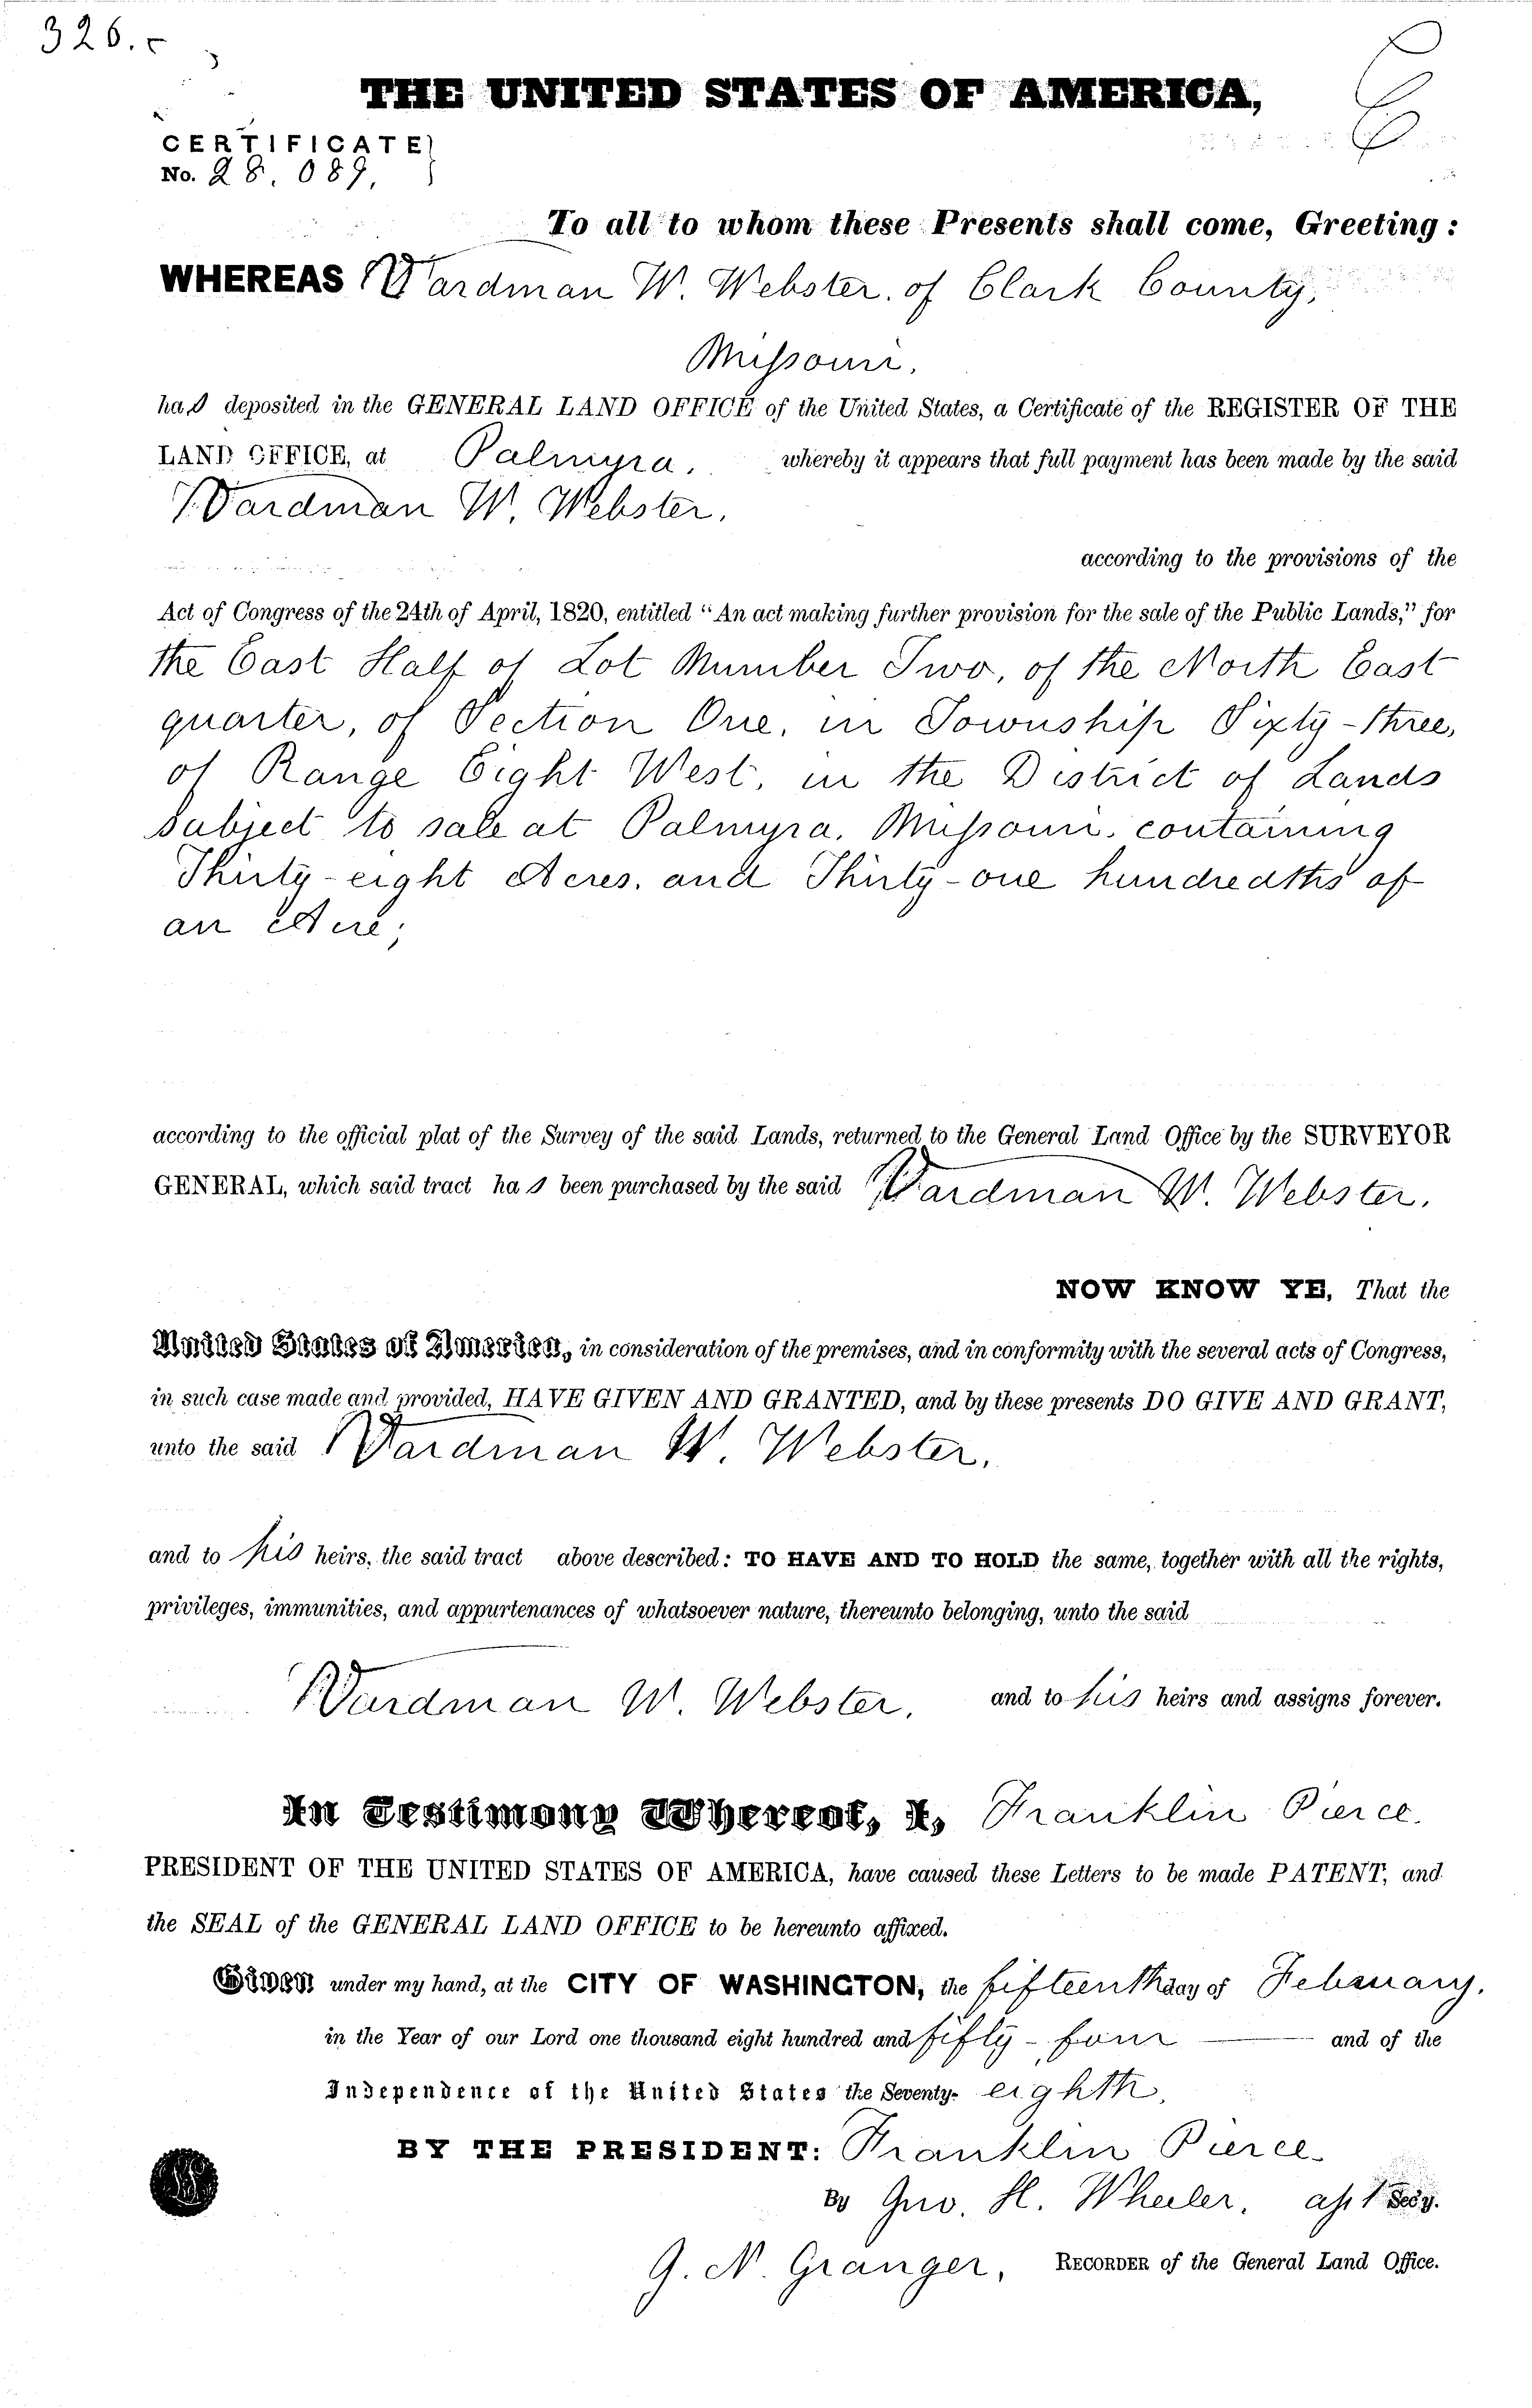 326.
THE UNITED STATES OF AMERICA,
CERTIFICATE
No. 28.089,
To all to whom these Presents shall come, Greeting:
WHEREAS Wardman W. Webster, of Clark County,
Missouri,
has deposited in the GENERAL LAND OFFICE of the United States, a Certificate of the REGISTER OF THE
LAND OFFICE, at Palmyra, whereby it appears that full payment has been made by the said
Wardman W. Webster,
according to the provisions of the
Act of Congress of the 24th of April, 1820, entitled "An act making further provision for the sale of the Public Lands," for
the East Half of Lot Number Two, of the North East
quarter, of Section One, in Township Sixty-three,
of Range Eight West, in the District of Lands
subject to sale at Palmyra, Missouri, containing
Thirty-eight Acres, and Thirty-one hundredths of
an Acre;
according to the official plat of the Survey of the said Lands, returned to the General Land Office by the SURVEYOR
GENERAL, which said tract has been purchased by the said Wardman W. Webster,
NOW KNOW YE, That the
United States of America, in consideration of the premises, and in conformity with the several acts of Congress,
in such case made and provided, HAVE GIVEN AND GRANTED, and by these presents DO GIVE AND GRANT,
unto the said Wardman W. Webster,
and to his heirs, the said tract above described: TO HAVE AND TO HOLD the same, together with all the rights,
privileges, immunities, and appurtenances of whatsoever nature, thereunto belonging, unto the said
Wardman W. Webster, and to his heirs and assigns forever.
In Testimony Whereof, I, Franklin Pierce,
PRESIDENT OF THE UNITED STATES OF AMERICA, have caused these Letters to be made PATENT, and
the SEAL of the GENERAL LAND OFFICE to be hereunto affixed.
Given under my hand, at the CITY OF WASHINGTON, the fifteenth day of February,
in the Year of our Lord one thousand eight hundred and fifty-four and of the
Independence of the United States the Seventy-eighth,
BY THE PRESIDENT: Franklin Pierce
By Jno. H. Wheeler, asst Secy.
J. N. Granger, RECORDER of the General Land Office.